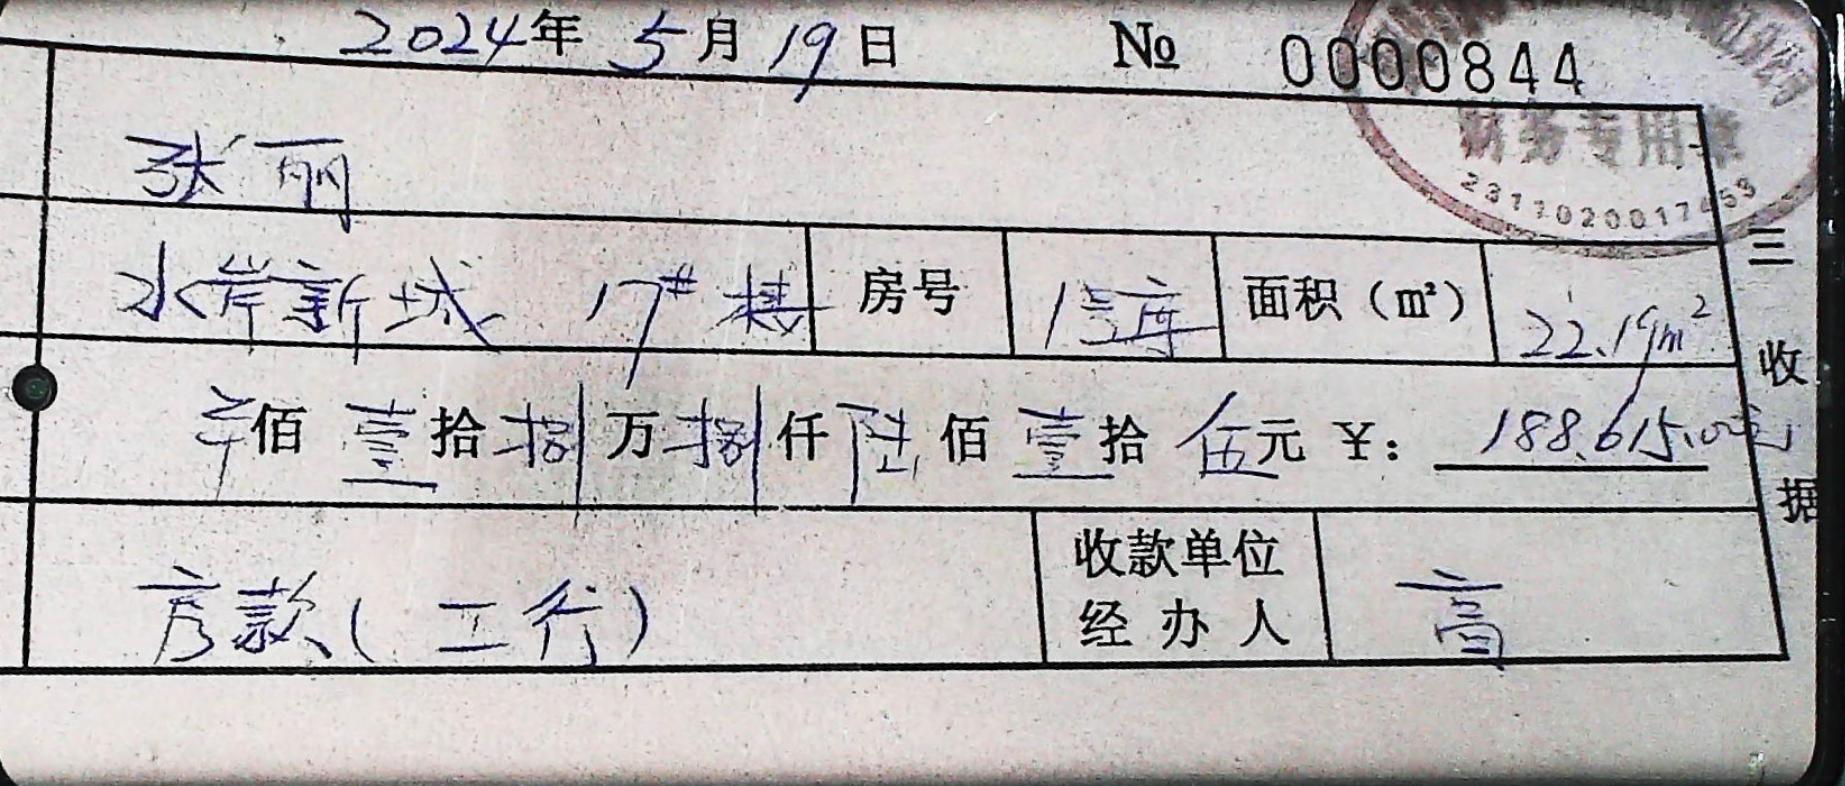 2024年 5月19日 № 0000844
财务专用章
2311020017453
张丽
水岸新城 17#楼 房号 1号库 面积（㎡） 22.19m²
佰 壹拾捌万捌仟陆佰壹拾伍元 ¥： 188.615.00元
房款（工行） 收款单位
经办人 高
三
收
据